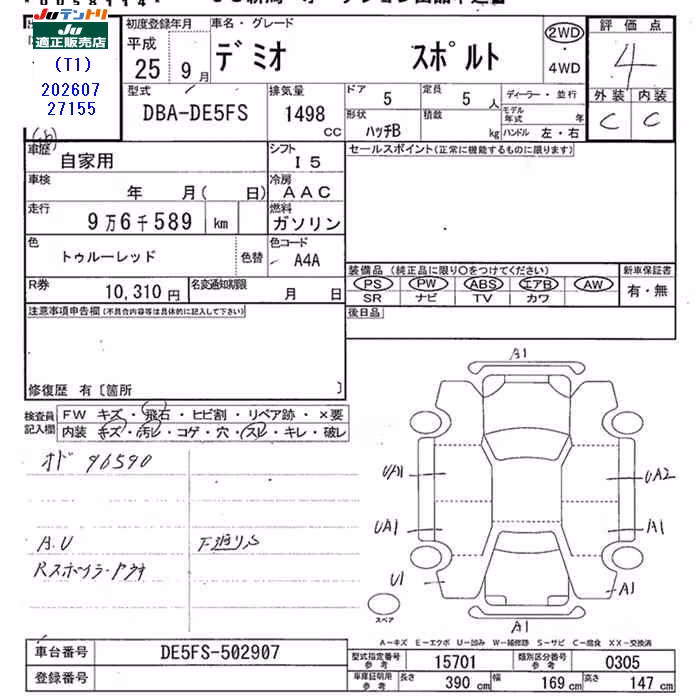 JU テントリ
JU適正販売店
(T1)
202607
27155
初度登録年月
平成
25年 9月
車名・グレード
デミオ スポルト
2WD
・
4WD
評価点
4
外装 内装
C C
型式
DBA-DE5FS
排気量
1498 CC
ドア 5
定員 5 人
ディーラー・並行
形状 ハッチB
積載 kg
モデル年式 年
ハンドル 左・右
車歴 自家用
シフト I5
セールスポイント(正常に機能するものに限ります)
車検 年 月( 日)
冷房 AAC
走行 9万6千589 km
燃料 ガソリン
色 トゥルーレッド
色替
色コード A4A
装備品 (純正品に限り○をつけてください)
新車保証書
PS PW ABS エアB AW
有・無
SR ナビ TV カワ
R券 10,310 円
名変通知期限 月 日
後日品
注意事項申告欄(不具合内容等は具体的に記入して下さい)
修復歴 有〔箇所 〕
検査員記入欄
FW キズ・飛石・ヒビ割・リペア跡・×要
内装 キズ・汚レ・コゲ・穴・スレ・キレ・破レ
オド 96590
A.U 下廻りS
Rスポイラー
A1
UA1
UA2
UA1
A1
U1
A1
スペア
A1
A-キズ E-エクボ U-凹み W-補修跡 S-サビ C-腐食 XX-交換済
車台番号 DE5FS-502907
型式指定番号 参考 15701
類別区分番号 参考 0305
登録番号
車庫証明用 参考 長さ 390 cm 幅 169 cm 高さ 147 cm